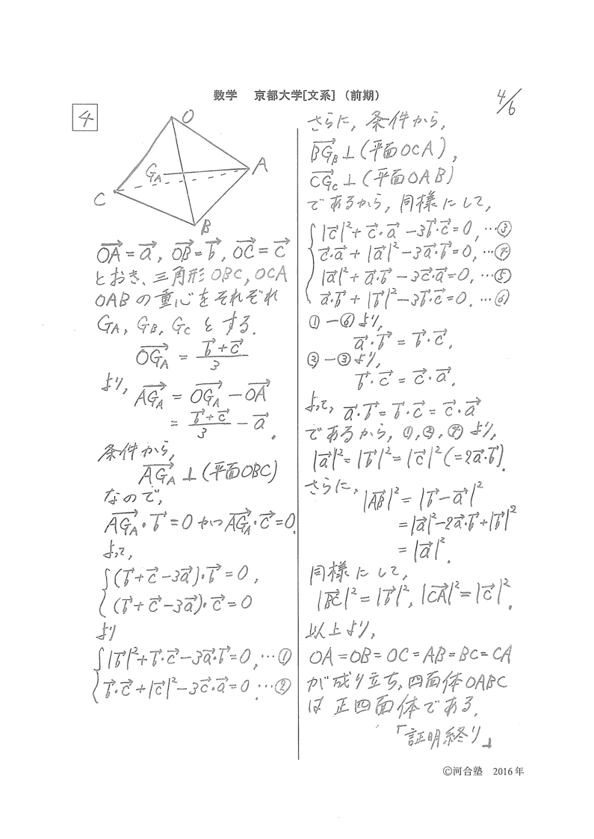 数学 京都大学[文系] (前期)
4/6
4
O
A
GA
C
B
→OA=→a, →OB=→b, →OC=→c
とおき、三角形OBC, OCA
OABの重心をそれぞれ
GA, GB, GC とする.
→OGA = (→b+→c)/3
より, →AGA = →OGA − →OA
= (→b+→c)/3 − →a.
条件から,
→AGA ⊥ (平面OBC)
なので,
→AGA・→b=0 かつ →AGA・→c=0.
よって,
{(→b+→c−3→a)・→b=0,
(→b+→c−3→a)・→c=0
より
{|→b|²+→b・→c−3→a・→b=0, …①
→b・→c+|→c|²−3→c・→a=0. …②
さらに, 条件から,
→BGB⊥(平面OCA),
→CGC⊥(平面OAB)
であるから, 同様にして,
{|→c|²+→c・→a−3→b・→c=0, …③
→c・→a+|→a|²−3→a・→b=0, …④
|→a|²+→a・→b−3→c・→a=0, …⑤
→a・→b+|→b|²−3→b・→c=0. …⑥
①−⑥より,
→a・→b=→b・→c.
②−③より,
→b・→c=→c・→a.
よって, →a・→b=→b・→c=→c・→a
であるから, ①,②,④より,
|→a|²=|→b|²=|→c|²(=2→a・→b).
さらに,
|→AB|²=|→b−→a|²
=|→a|²−2→a・→b+|→b|²
=|→a|².
同様にして,
|→BC|²=|→b|², |→CA|²=|→c|².
以上より,
OA=OB=OC=AB=BC=CA
が成り立ち, 四面体OABC
は正四面体である.
「証明終り」
©河合塾 2016年